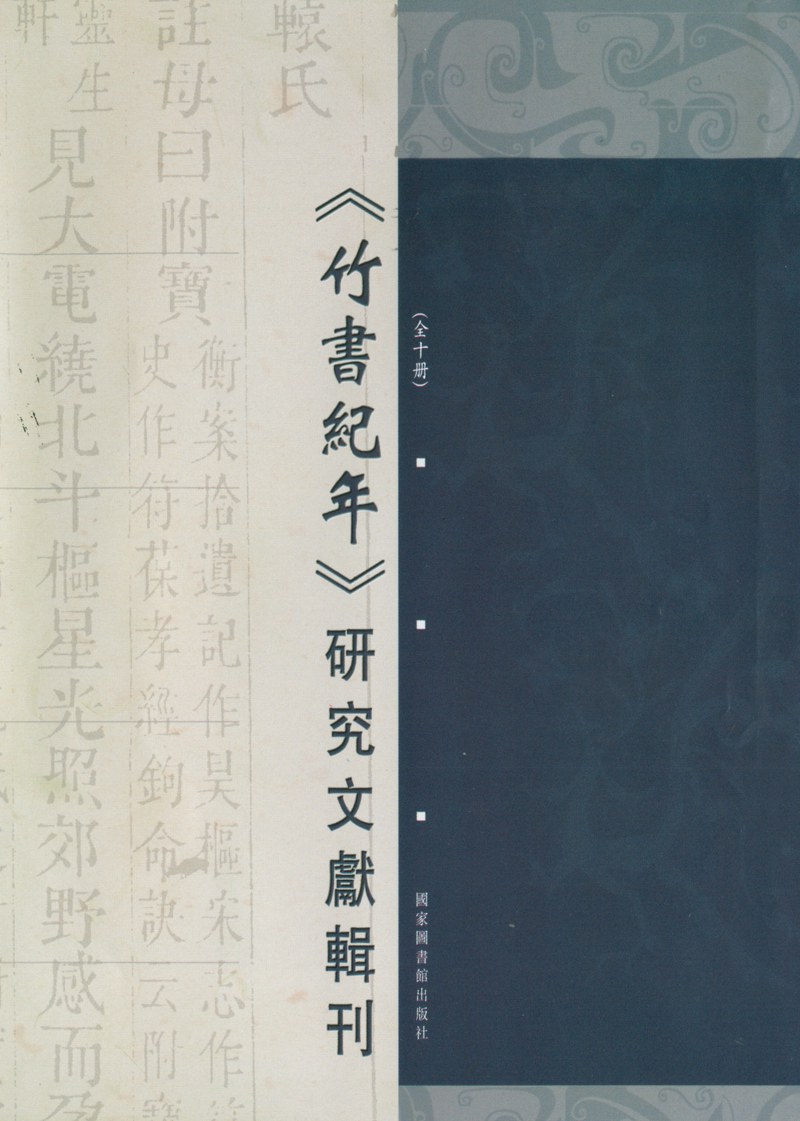 《竹書紀年》研究文獻輯刊
(全十册)
國家圖書館出版社
轅氏
註母曰附寶
衡案拾遺記作昊樞宋志作
史作符葆孝經鉤命訣云附寶
靈生
軒
見大電繞北斗樞星光照郊野感而孕